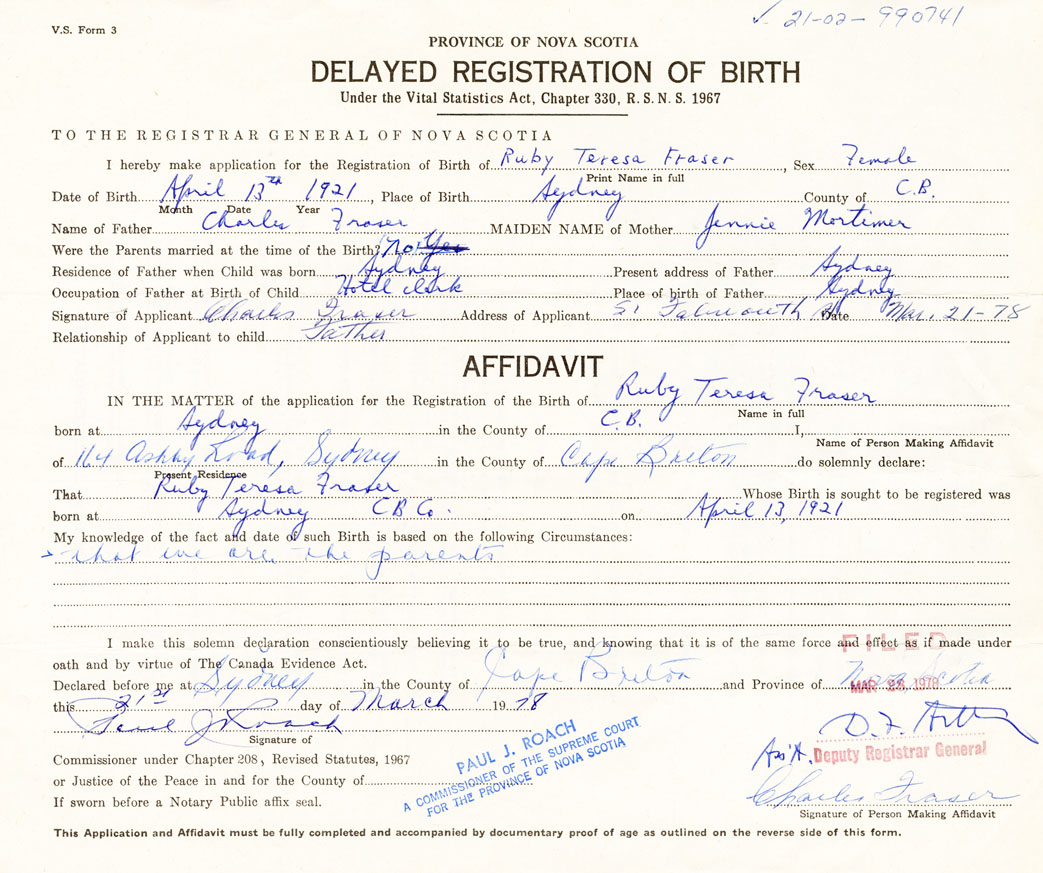 V.S. Form 3
✓ 21-02-990741
PROVINCE OF NOVA SCOTIA
DELAYED REGISTRATION OF BIRTH
Under the Vital Statistics Act, Chapter 330, R.S.N.S. 1967
TO THE REGISTRAR GENERAL OF NOVA SCOTIA
I hereby make application for the Registration of Birth of Ruby Teresa Fraser, Sex Female
Print Name in full
Date of Birth April 13th 1921, Place of Birth Sydney County of C.B.
Month Date Year
Name of Father Charles Fraser MAIDEN NAME of Mother Jennie Mortimer
Were the Parents married at the time of the Birth? No. Yes
Residence of Father when Child was born Sydney Present address of Father Sydney
Occupation of Father at Birth of Child Hotel clerk Place of birth of Father Sydney
Signature of Applicant Charles Fraser Address of Applicant 51 Falmouth Date Mar. 21-78
Relationship of Applicant to child Father
AFFIDAVIT
IN THE MATTER of the application for the Registration of the Birth of Ruby Teresa Fraser
Name in full
born at Sydney in the County of C.B. I,
Name of Person Making Affidavit
of 164 Ashby Road, Sydney in the County of Cape Breton do solemnly declare:
Present Residence
That Ruby Teresa Fraser Whose Birth is sought to be registered was
born at Sydney CB Co. on April 13, 1921
My knowledge of the fact and date of such Birth is based on the following Circumstances:
that we are the parents
I make this solemn declaration conscientiously believing it to be true, and knowing that it is of the same force and effect as if made under
FILED
oath and by virtue of The Canada Evidence Act.
Declared before me at Sydney in the County of Cape Breton and Province of Nova Scotia
MAR 28 1978
this 21st day of March 1978
Paul J Roach
Signature of
Commissioner under Chapter 208, Revised Statutes, 1967
or Justice of the Peace in and for the County of
If sworn before a Notary Public affix seal.
PAUL J. ROACH
A COMMISSIONER OF THE SUPREME COURT
FOR THE PROVINCE OF NOVA SCOTIA
Ass't. Deputy Registrar General
Charles Fraser
Signature of Person Making Affidavit
This Application and Affidavit must be fully completed and accompanied by documentary proof of age as outlined on the reverse side of this form.